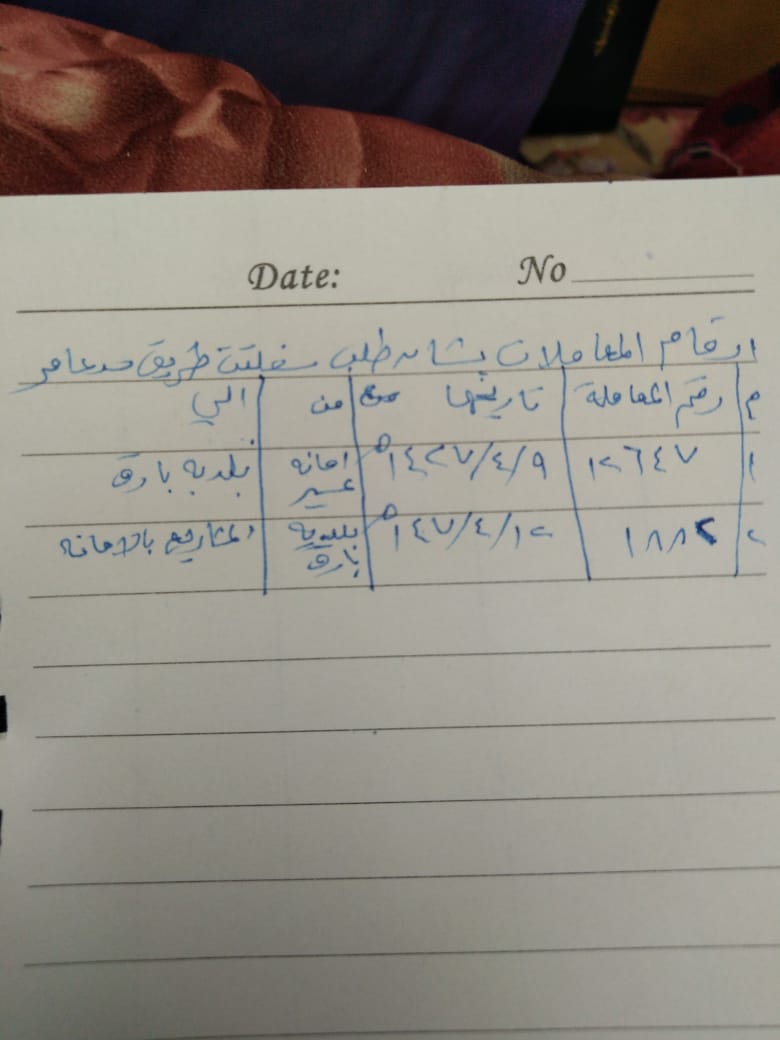 Date: No
ارقام المعاملات بشان طلب سفلتت طريق
م رقم المعاملة تاريخها من الي
١ ١٢٦٤٧ ١٤٣٧/٤/٩ه امانه عسير بلديه بارق
٢ ١٨٨٢ ١٤٧/٤/١٢ه بلديه بارق المشاريع بالامانه